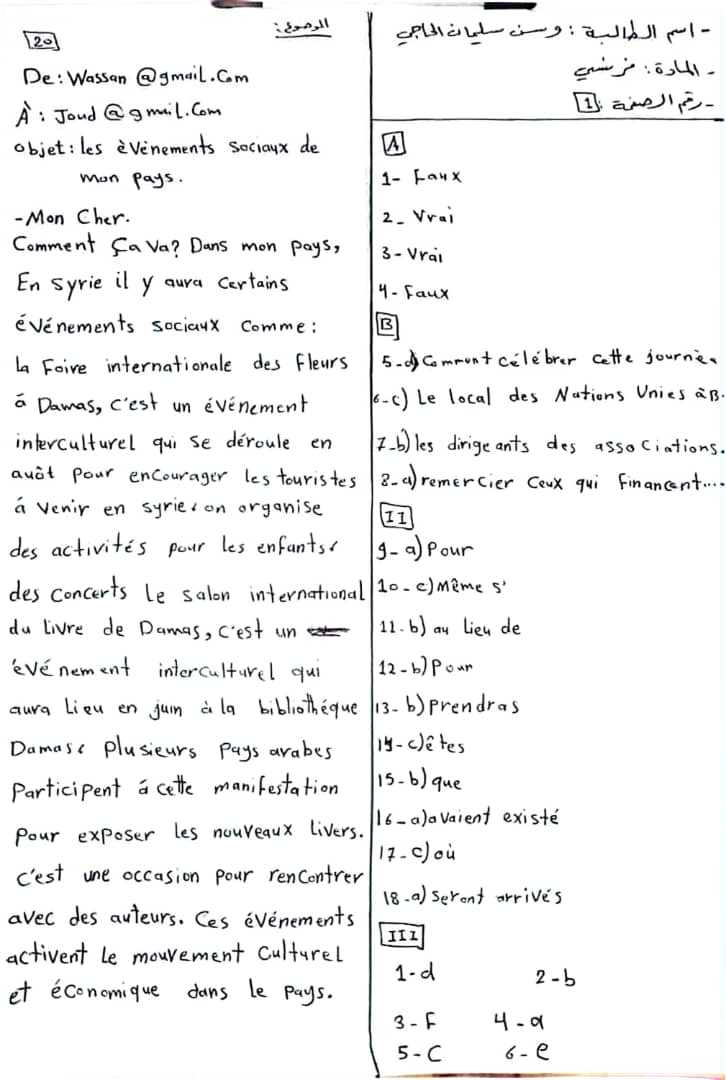 - اسم الطالبة : وسن سليمان الحاجي
- المادة : فرنسي
- رقم الصفحة : 1
A
1- Faux
2- Vrai
3- Vrai
4- Faux
B
5-d) Comment célébrer cette journée
6-c) Le local des Nations Unies àB.
7-b) les dirigeants des associations.
8-a) remercier ceux qui financent....
II
9- a) Pour
10- c) Même s'
11- b) au lieu de
12-b) Pour
13- b) Prendras
14-c) êtes
15-b) que
16-a) avaient existé
17-c) où
18-a) seront arrivés
III
1-d 2-b
3-F 4-a
5-C 6-e
الموضوع:
20
De: Wassan @gmail.Com
À : Joud @gmail.Com
objet: les èvénements Sociaux de
mon pays.
-Mon Cher.
Comment ça va? Dans mon pays,
En syrie il y aura certains
événements sociaux comme:
la Foire internationale des fleurs
á Damas, c'est un événement
interculturel qui se déroule en
auôt pour encourager les touristes
á venir en syrie, on organise
des activités pour les enfants,
des concerts le salon international
du Livre de Damas, c'est un
évé nement interculturel qui
aura Lieu en juin à la bibliothéque
Damas, plusieurs pays arabes
Participent á cette manifestation
pour exposer les nouveaux Livers.
c'est une occasion pour rencontrer
avec des auteurs. Ces événements
activent le mouvement Culturel
et économique dans le pays.